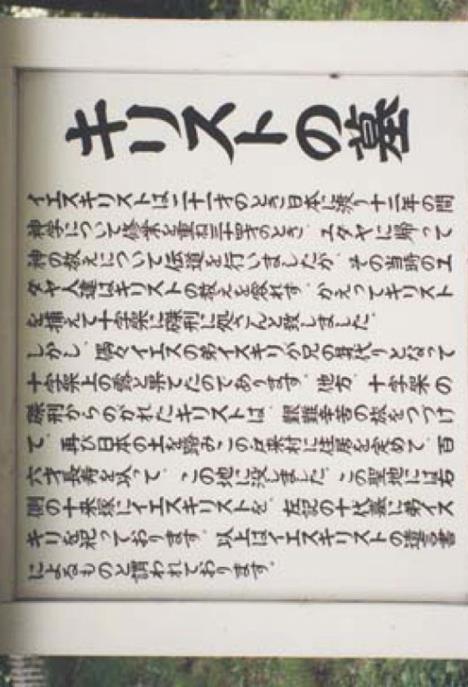 キリストの墓
イエスキリストは二十一才のとき日本に渡り十二年の間
神学について修業を重ね三十三才のとき、ユダヤに帰って
神の教えについて伝道を行いましたが、その当時のユ
ダヤ人達はキリストの教えを容れず、かえってキリスト
を捕えて十字架に磔刑に処さんと致しました。
しかし、偶々イエスの弟イスキリが兄の身代りとなって
十字架上の露と果てたのであります。他方、十字架の
磔刑からのがれたキリストは、艱難辛苦の旅をつづけ
て、再び日本の土を踏みこの戸来村に住居を定めて、百
六才長寿を以って、この地に没しました。この聖地には右
側の十来塚にイエスキリストを、左記の十代墓に弟イス
キリを祀っております。以上はイエスキリストの遺言書
によるものと謂われております。